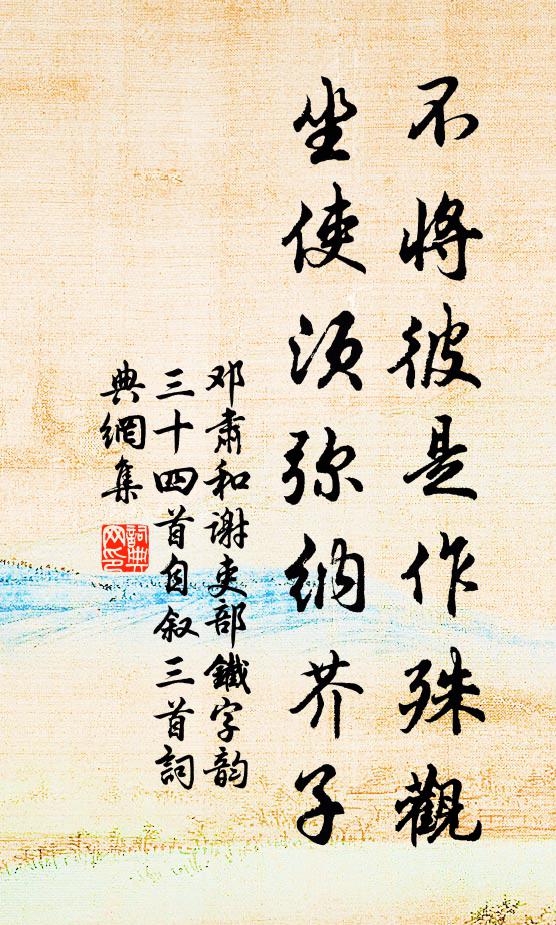 不将彼是作殊觀
坐使须弥纳芥子
邓肅和谢吏部鐵字韵
三十四首自叙三首詞
典網集
詞典
网印